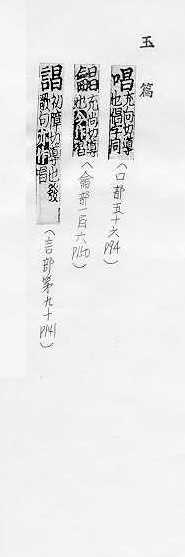 玉篇
唱充向切導也倡字同(口部五十六P94)
龠昌充尚切導也今作唱(龠部一百六P150)
誯初障切導也發歌句亦作唱(言部第九十P141)